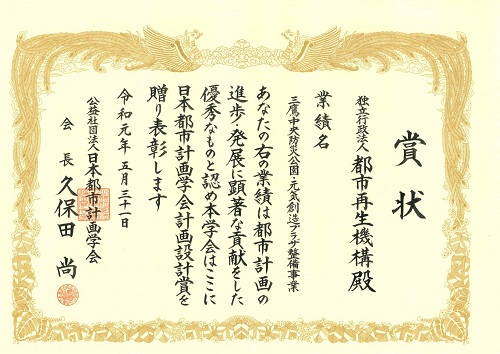 賞状
独立行政法人 都市再生機構殿
業績名
三鷹中央防災公園・元気創造プラザ整備事業
あなたの右の業績は都市計画の
進歩・発展に顕著な貢献をした
優秀なものと認め本学会はここに
日本都市計画学会計画設計賞を
贈り表彰します
令和元年五月三十一日
公益社団法人日本都市計画学会
会長 久保田 尚